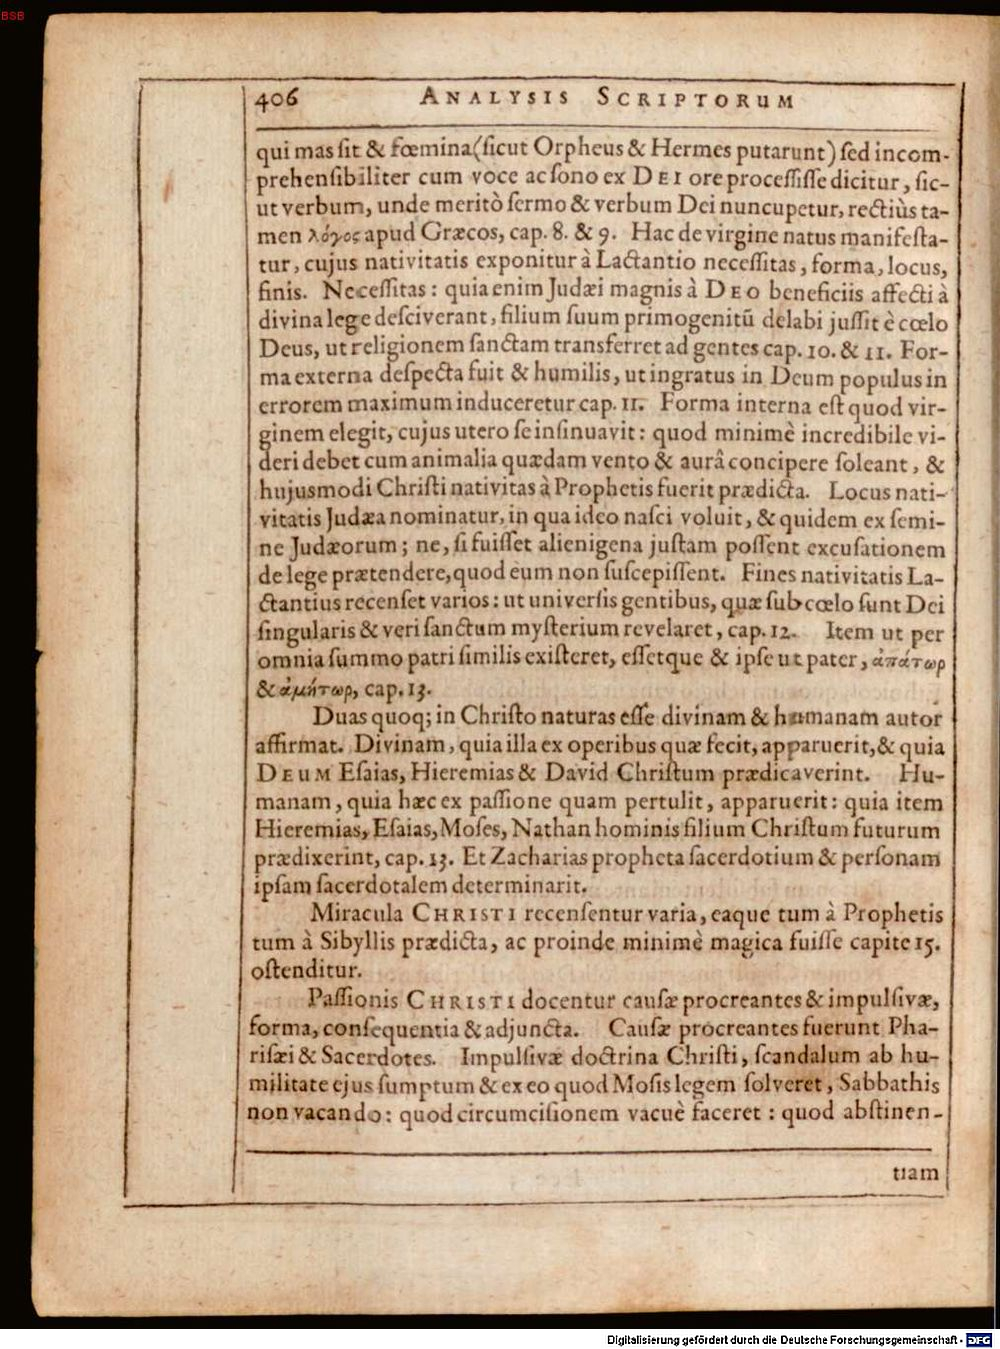 BSB
406 ANALYSIS SCRIPTORUM
qui mas sit & fœmina (sicut Orpheus & Hermes putarunt) sed incom-
prehensibiliter cum voce ac sono ex DEI ore processisse dicitur, sic-
ut verbum, unde meritò sermo & verbum Dei nuncupetur, rectiùs ta-
men λόγος apud Græcos, cap. 8. & 9. Hac de virgine natus manifesta-
tur, cujus nativitatis exponitur à Lactantio necessitas, forma, locus,
finis. Necessitas: quia enim Judæi magnis à DEO beneficiis affecti à
divina lege desciverant, filium suum primogenitũ delabi jussit è cœlo
Deus, ut religionem sanctam transferret ad gentes cap. 10. & 11. For-
ma externa despecta fuit & humilis, ut ingratus in Deum populus in
errorem maximum induceretur cap. 11. Forma interna est quod vir-
ginem elegit, cujus utero se insinuavit: quod minimè incredibile vi-
deri debet cum animalia quædam vento & aurâ concipere soleant, &
hujusmodi Christi nativitas à Prophetis fuerit prædicta. Locus nati-
vitatis Judæa nominatur, in qua ideo nasci voluit, & quidem ex semi-
ne Judæorum; ne, si fuisset alienigena justam possent excusationem
de lege prætendere, quod eum non suscepissent. Fines nativitatis La-
ctantius recenset varios: ut universis gentibus, quæ sub cœlo sunt Dei
singularis & veri sanctum mysterium revelaret, cap. 12. Item ut per
omnia summo patri similis existeret, essetque & ipse ut pater, ἀπάτωρ
& ἀμήτωρ, cap. 13.
Duas quoq; in Christo naturas esse divinam & humanam autor
affirmat. Divinam, quia illa ex operibus quæ fecit, apparuerit, & quia
DEUM Esaias, Hieremias & David Christum prædicaverint. Hu-
manam, quia hæc ex passione quam pertulit, apparuerit: quia item
Hieremias, Esaias, Moses, Nathan hominis filium Christum futurum
prædixerint, cap. 13. Et Zacharias propheta sacerdotium & personam
ipsam sacerdotalem determinarit.
Miracula CHRISTI recensentur varia, eaque tum à Prophetis
tum à Sibyllis prædicta, ac proinde minimè magica fuisse capite 15.
ostenditur.
Passionis CHRISTI docentur causæ procreantes & impulsivæ,
forma, consequentia & adjuncta. Causæ procreantes fuerunt Pha-
risæi & Sacerdotes. Impulsivæ doctrina Christi, scandalum ab hu-
militate ejus sumptum & ex eo quod Mosis legem solveret, Sabbathis
non vacando: quod circumcisionem vacuè faceret: quod abstinen-
tiam
Digitalisierung gefördert durch die Deutsche Forschungsgemeinschaft - DFG